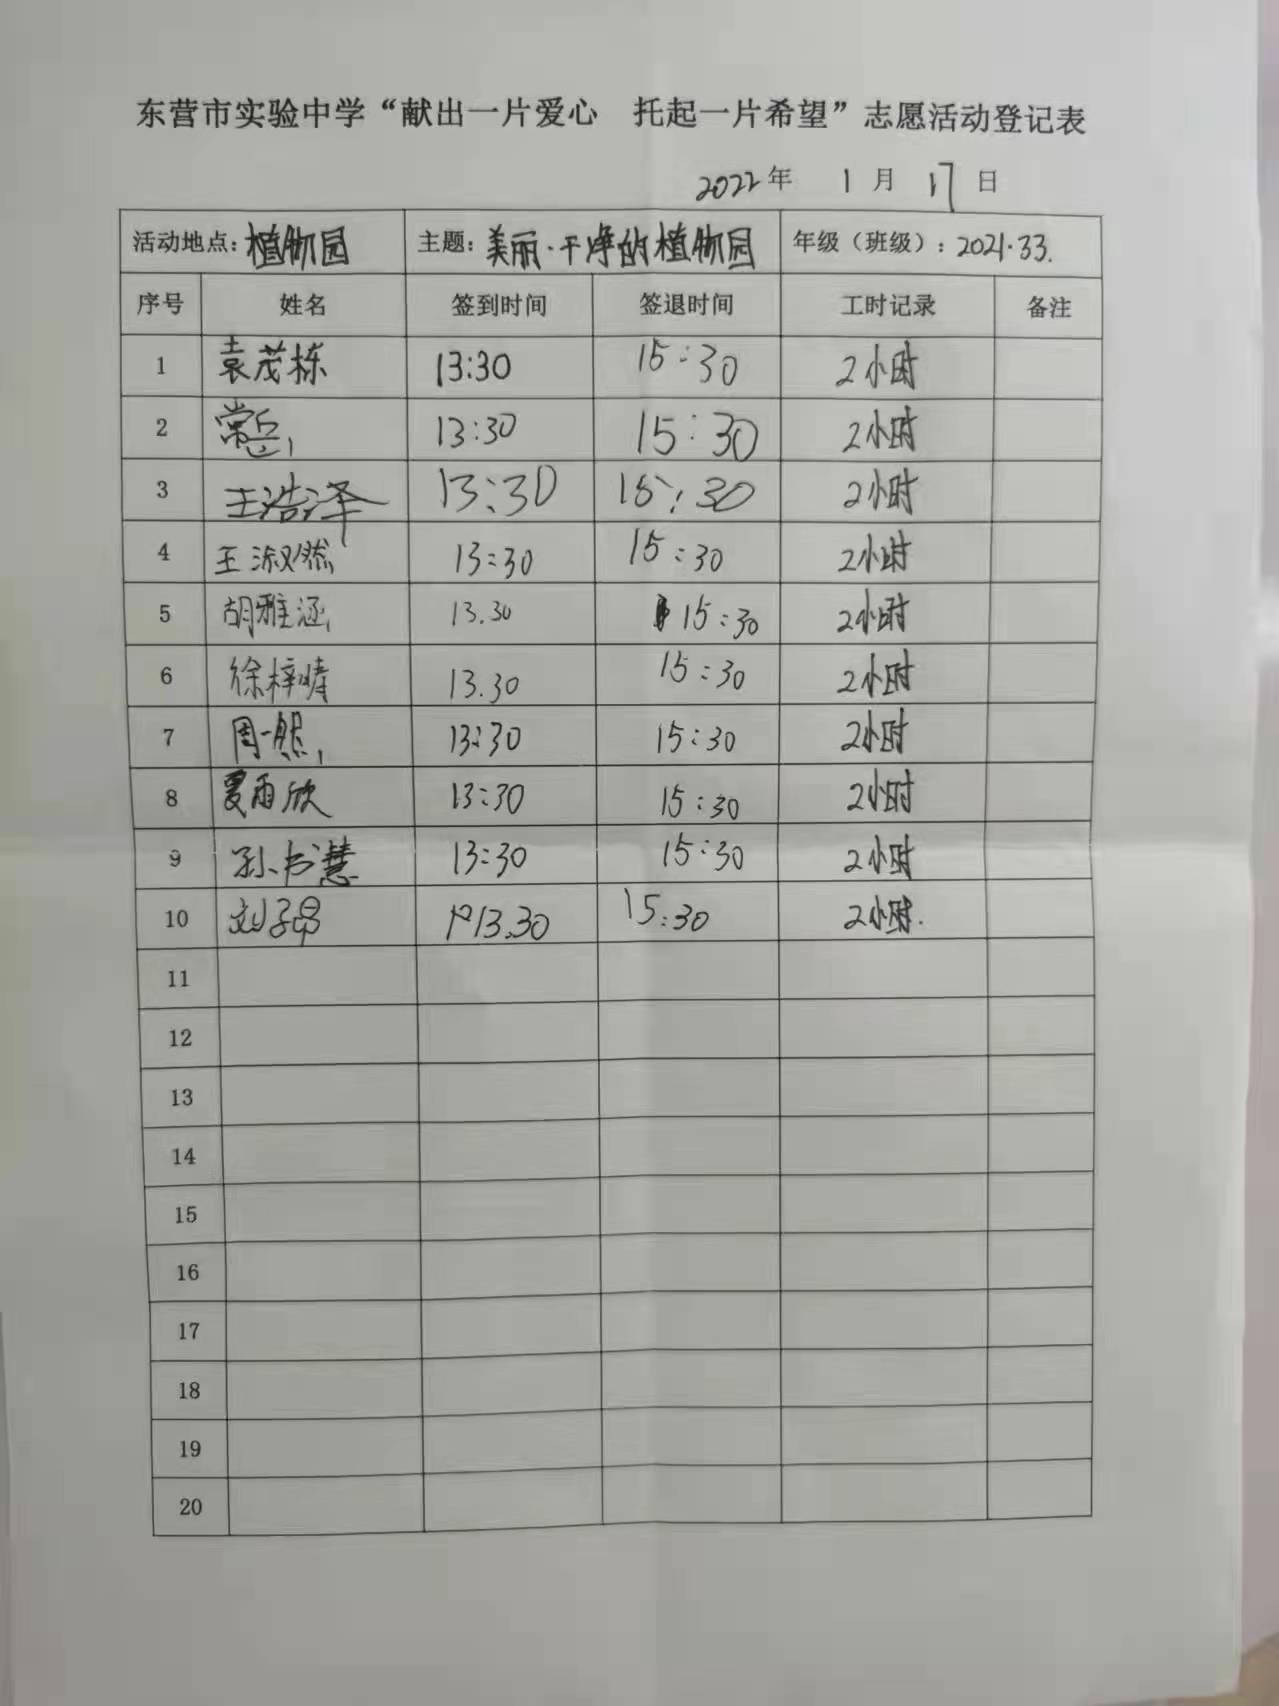 东营市实验中学“献出一片爱心 托起一片希望”志愿活动登记表
2022年 1月 17日
活动地点:植物园 主题:美丽·干净的植物园 年级（班级）:2021·33.
序号 姓名 签到时间 签退时间 工时记录 备注
1 袁茂栋 13:30 15:30 2小时
2 13:30 15:30 2小时
3 王浩泽 13:30 15:30 2小时
4 王淑然 13:30 15:30 2小时
5 胡雅涵 13.30 15:30 2小时
6 徐梓晴 13.30 15:30 2小时
7 周一然 13:30 15:30 2小时
8 夏雨欣 13:30 15:30 2小时
9 孙书慧 13:30 15:30 2小时
10 刘子昂 13.30 15:30 2小时.
11
12
13
14
15
16
17
18
19
20